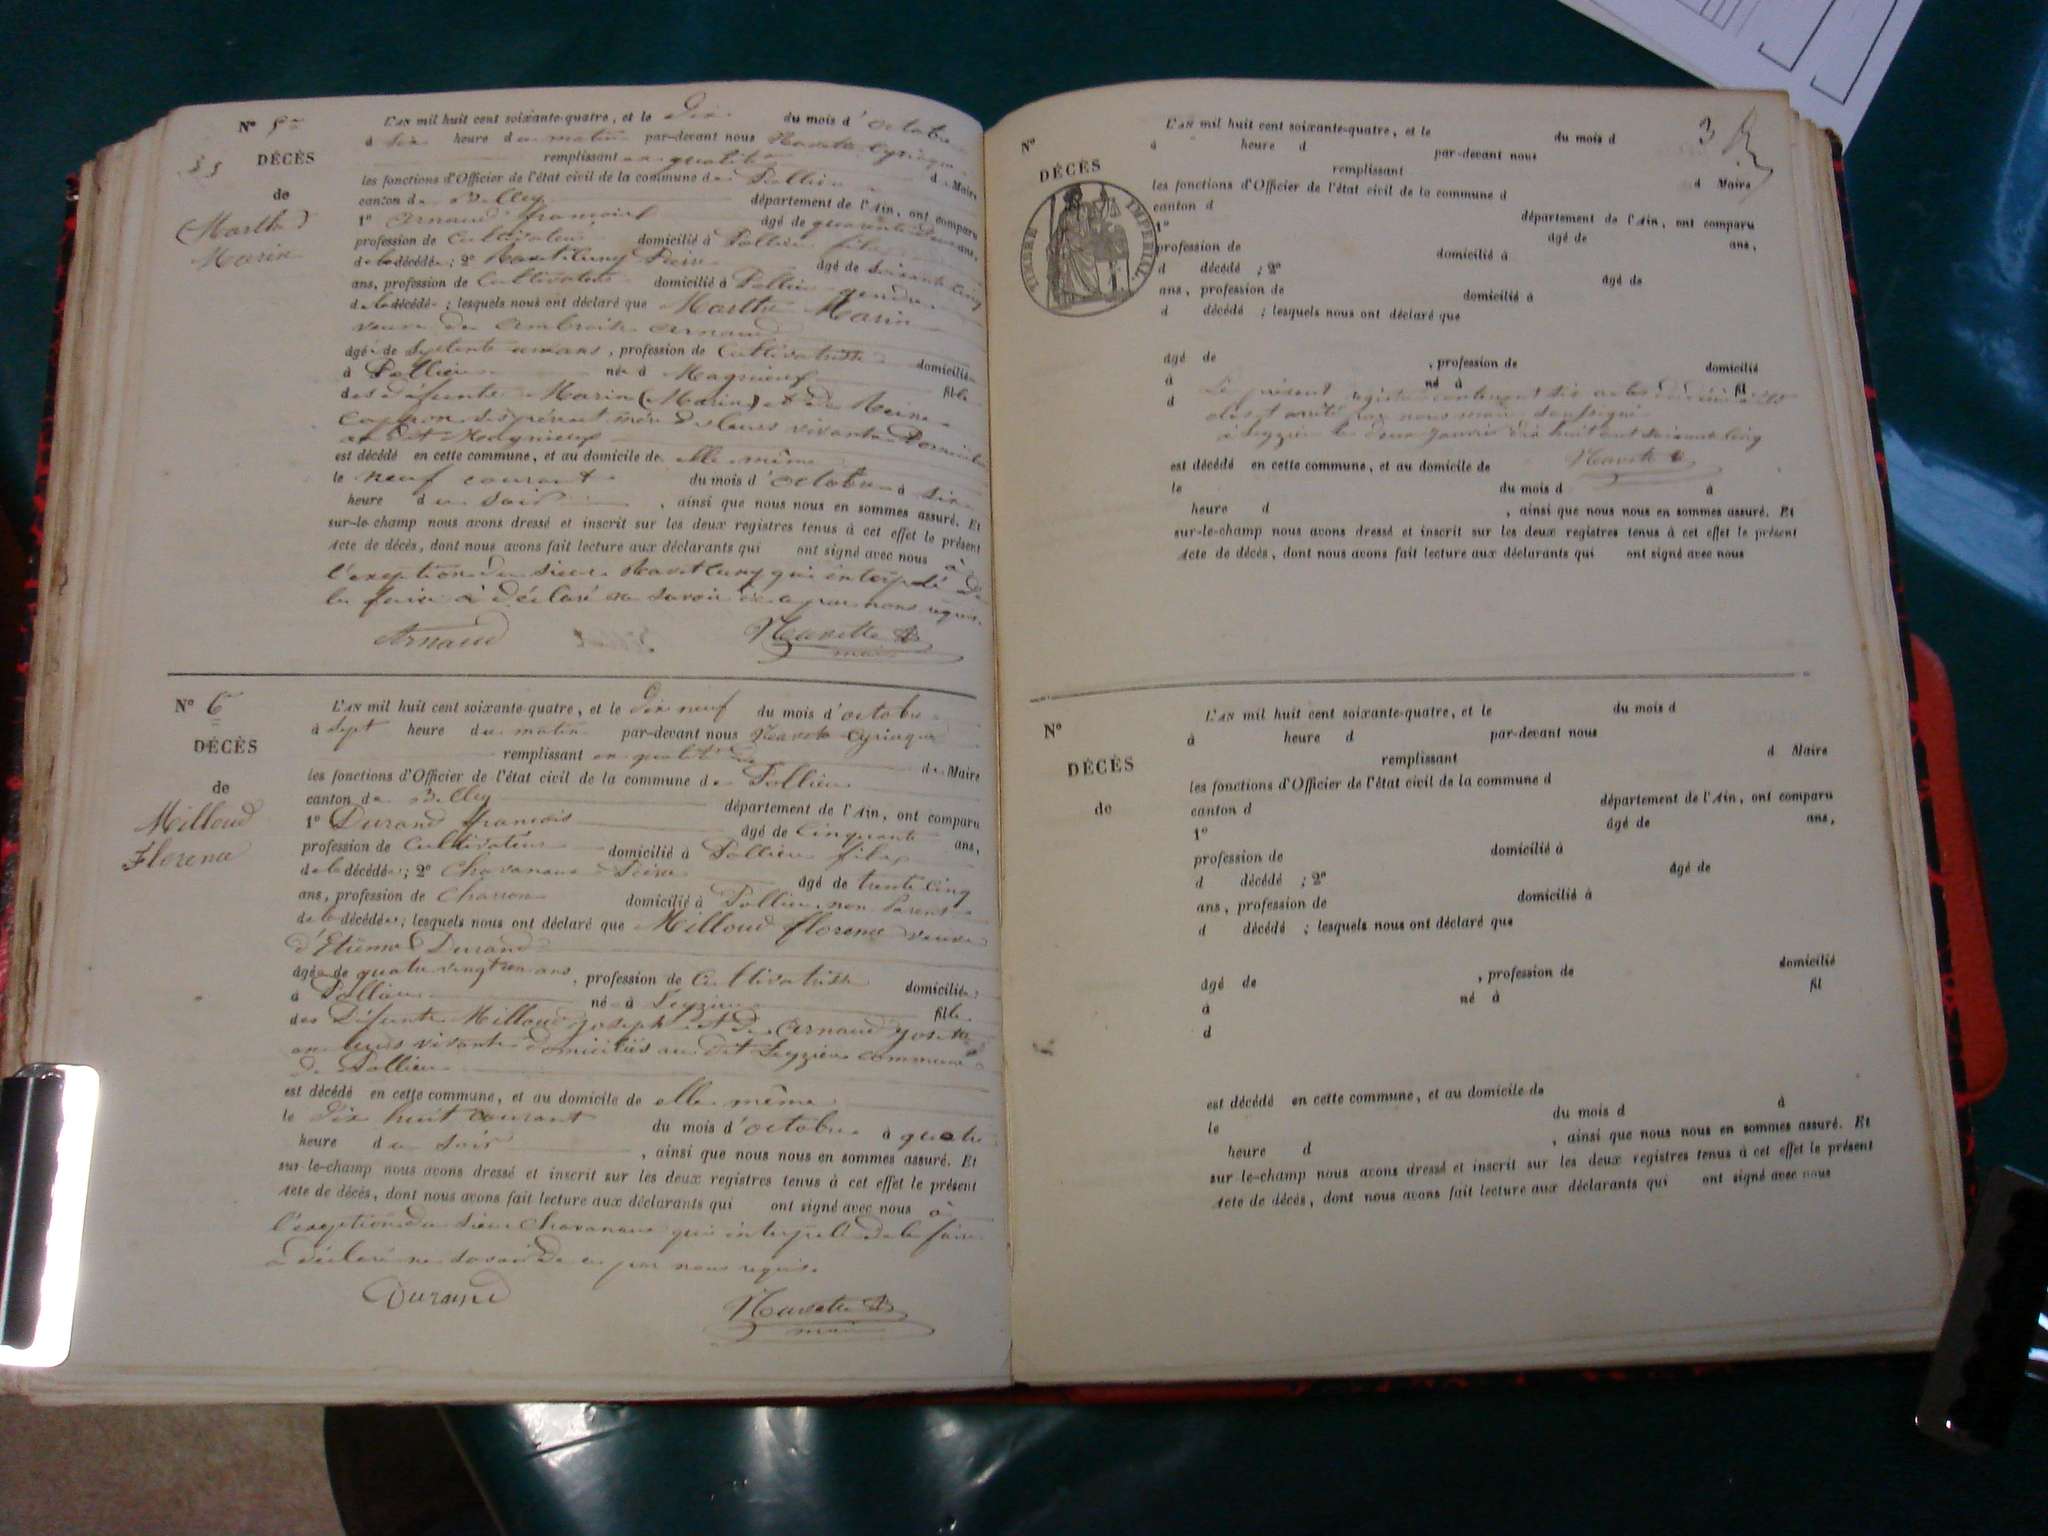 N° 5
DÉCÈS
de
Marthe
Marin
L'AN mil huit cent soixante-quatre, et le dix du mois d'octobre
à six heure du matin par-devant nous Navette Cyriaque
remplissant en qualité
d Maire
les fonctions d'Officier de l'état civil de la commune de Pollieu
canton de Belley département de l'Ain, ont comparu
1° Arnaud françois âgé de quarante deux ans,
profession de Cultivateur domicilié à Pollieu fils
de la décédée ; 2° Pierre âgé de soixante cinq
ans, profession de Cultivateur domicilié à Pollieu gendre
de la décédée ; lesquels nous ont déclaré que Marthe Marin
veuve de Ambroise Arnaud
âgée de septante ans, profession de Cultivatrice domiciliée
à Pollieu née à Magnieu fille
des défunts Marin (Marin) et de Reine
leurs vivants Domiciliés
au dit Magnieu
est décédé en cette commune, et au domicile de elle même
le neuf courant du mois d'octobre à six
heure du soir , ainsi que nous nous en sommes assuré. Et
sur-le-champ nous avons dressé et inscrit sur les deux registres tenus à cet effet le présent
Acte de décès, dont nous avons fait lecture aux déclarants qui ont signé avec nous à
l'exeption du sieur qui interpelé de
le faire à déclaré ne savoir de ce par nous requis.
Arnaud Navette
maire
N° 6
DÉCÈS
de
Milloud
Florence
L'AN mil huit cent soixante-quatre, et le dix neuf du mois d'octobre
à sept heure du matin par-devant nous Navette Cyriaque
remplissant en qualité
de Maire
les fonctions d'Officier de l'état civil de la commune de Pollieu
canton de Belley département de l'Ain, ont comparu
1° Durand françois âgé de Cinquante ans,
profession de Cultivateur domicilié à Pollieu fils
de la décédée ; 2° Chavanane Pierre âgé de trente cinq
ans, profession de Charron domicilié à Pollieu non Parent
de la décédée ; lesquels nous ont déclaré que Milloud florence veuve
d'Etienne Durand
âgée de quatre vingt ans, profession de Cultivatrice domiciliée
à Pollieu née à Leyzieu fille
des Défunts Milloud joseph et de Arnaud
en leurs vivants domiciliés au dit Leyzieu commune
de Pollieu
est décédé en cette commune, et au domicile de elle même
le dix huit courant du mois d'octobre à quatre
heure du soir , ainsi que nous nous en sommes assuré. Et
sur-le-champ nous avons dressé et inscrit sur les deux registres tenus à cet effet le présent
Acte de décès, dont nous avons fait lecture aux déclarants qui ont signé avec nous à
l'exeption du sieur Chavanane qui interpelé de le faire
a déclaré ne savoir de ce par nous requis.
Durand Navette
maire
3
N°
DÉCÈS
TIMBRE IMPERIAL
L'AN mil huit cent soixante-quatre, et le du mois d
à heure d par-devant nous
remplissant
d Maire
les fonctions d'Officier de l'état civil de la commune d
canton d département de l'Ain, ont comparu
1° âgé de ans,
profession de domicilié à
d décédé ; 2° âgé de
ans, profession de domicilié à
d décédé ; lesquels nous ont déclaré que
âgé de , profession de domicilié
à né à fil
d
Le présent registre contenant six actes de décès
clos et arrêté par nous maire soussigné
à Leyzieu le deux janvier dix huit cent soixante cinq
Navette
est décédé en cette commune, et au domicile de
le du mois d à
heure d , ainsi que nous nous en sommes assuré. Et
sur-le-champ nous avons dressé et inscrit sur les deux registres tenus à cet effet le présent
Acte de décès, dont nous avons fait lecture aux déclarants qui ont signé avec nous
N°
DÉCÈS
de
L'AN mil huit cent soixante-quatre, et le du mois d
à heure d par-devant nous
remplissant d Maire
les fonctions d'Officier de l'état civil de la commune d
canton d département de l'Ain, ont comparu
1° âgé de ans,
profession de domicilié à
d décédé ; 2° âgé de
ans, profession de domicilié à
d décédé ; lesquels nous ont déclaré que
âgé de , profession de domicilié
à né à fil
d
est décédé en cette commune, et au domicile de
le du mois d à
heure d , ainsi que nous nous en sommes assuré. Et
sur-le-champ nous avons dressé et inscrit sur les deux registres tenus à cet effet le présent
Acte de décès, dont nous avons fait lecture aux déclarants qui ont signé avec nous